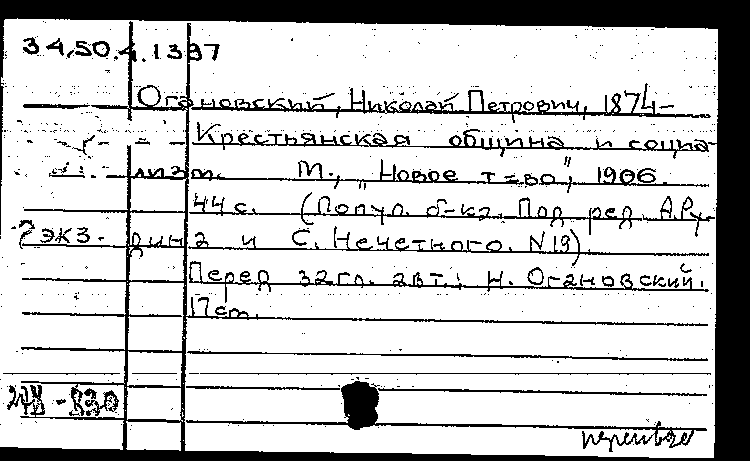 34.50.4.1397
Огановский, Николай Петрович, 1874-
Крестьянская община и социа-
лизм. М., „Новое т=во", 1906.
44 с. (Попул. б-ка. Под ред. А.Ру-
2 экз. дина и С. Нечетного. N 19).
Перед загл. авт.: Н. Огановский.
17 см.
-830